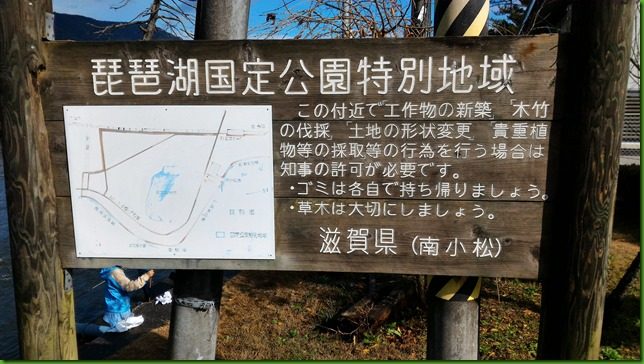 琵琶湖国定公園特別地域
この付近で工作物の新築、木竹
の伐採、土地の形状変更、貴重植
物等の採取等の行為を行う場合は
知事の許可が必要です。
・ゴミは各自で持ち帰りましょう。
・草木は大切にしましょう。
滋賀県（南小松）